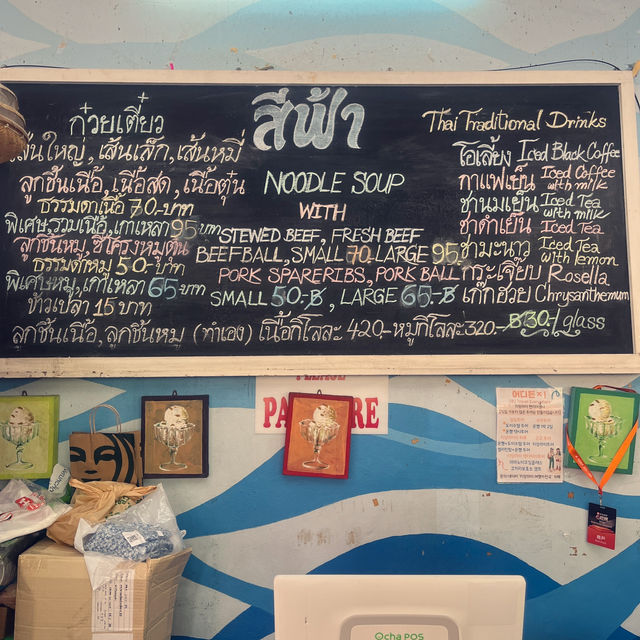 สีฟ้า
ก๋วยเตี๋ยว
เส้นใหญ่, เส้นเล็ก, เส้นหมี่
ลูกชิ้นเนื้อ, เนื้อสด, เนื้อตุ๋น
ธรรมดาเนื้อ 70.-บาท
พิเศษรวมเนื้อ, เกาเหลา 95 บาท
ลูกชิ้นหมู, ซี่โครงหมูตุ๋น
ธรรมดาหมู 50.-บาท
พิเศษหมู, เกาเหลา 65 บาท
ข้าวเปล่า 15 บาท
NOODLE SOUP
WITH
STEWED BEEF, FRESH BEEF
BEEFBALL, SMALL 70-LARGE 95.-
PORK SPARERIBS, PORK BALL
SMALL 50-฿, LARGE 65-฿
Thai Traditional Drinks
โอเลี้ยง Iced Black Coffee
กาแฟเย็น Iced Coffee with milk
ชานมเย็น Iced Tea with milk
ชาดำเย็น Iced Tea
ชามะนาว Iced Tea with lemon
กระเจี๊ยบ Rosella
เก๊กฮวย Chrysanthemum
฿30.-/glass
ลูกชิ้นเนื้อ, ลูกชิ้นหมู (ทำเอง) เนื้อกิโลละ 420.-หมูกิโลละ 320.-
PLEASE
PA RE
어디든x1
Ocha POS